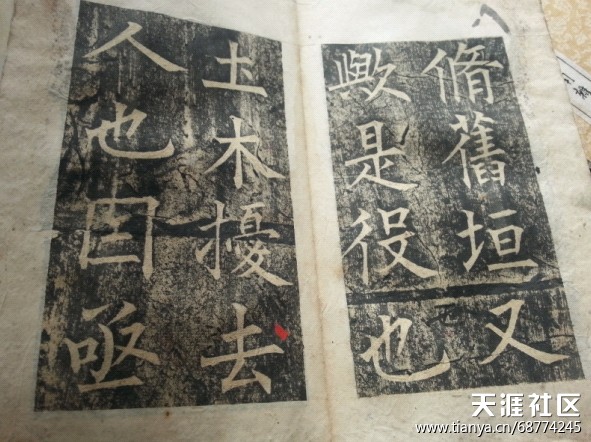 脩舊垣又
歟是役也
土木擾去
人也因亟
天涯社区
www.tianya.cn/68774245